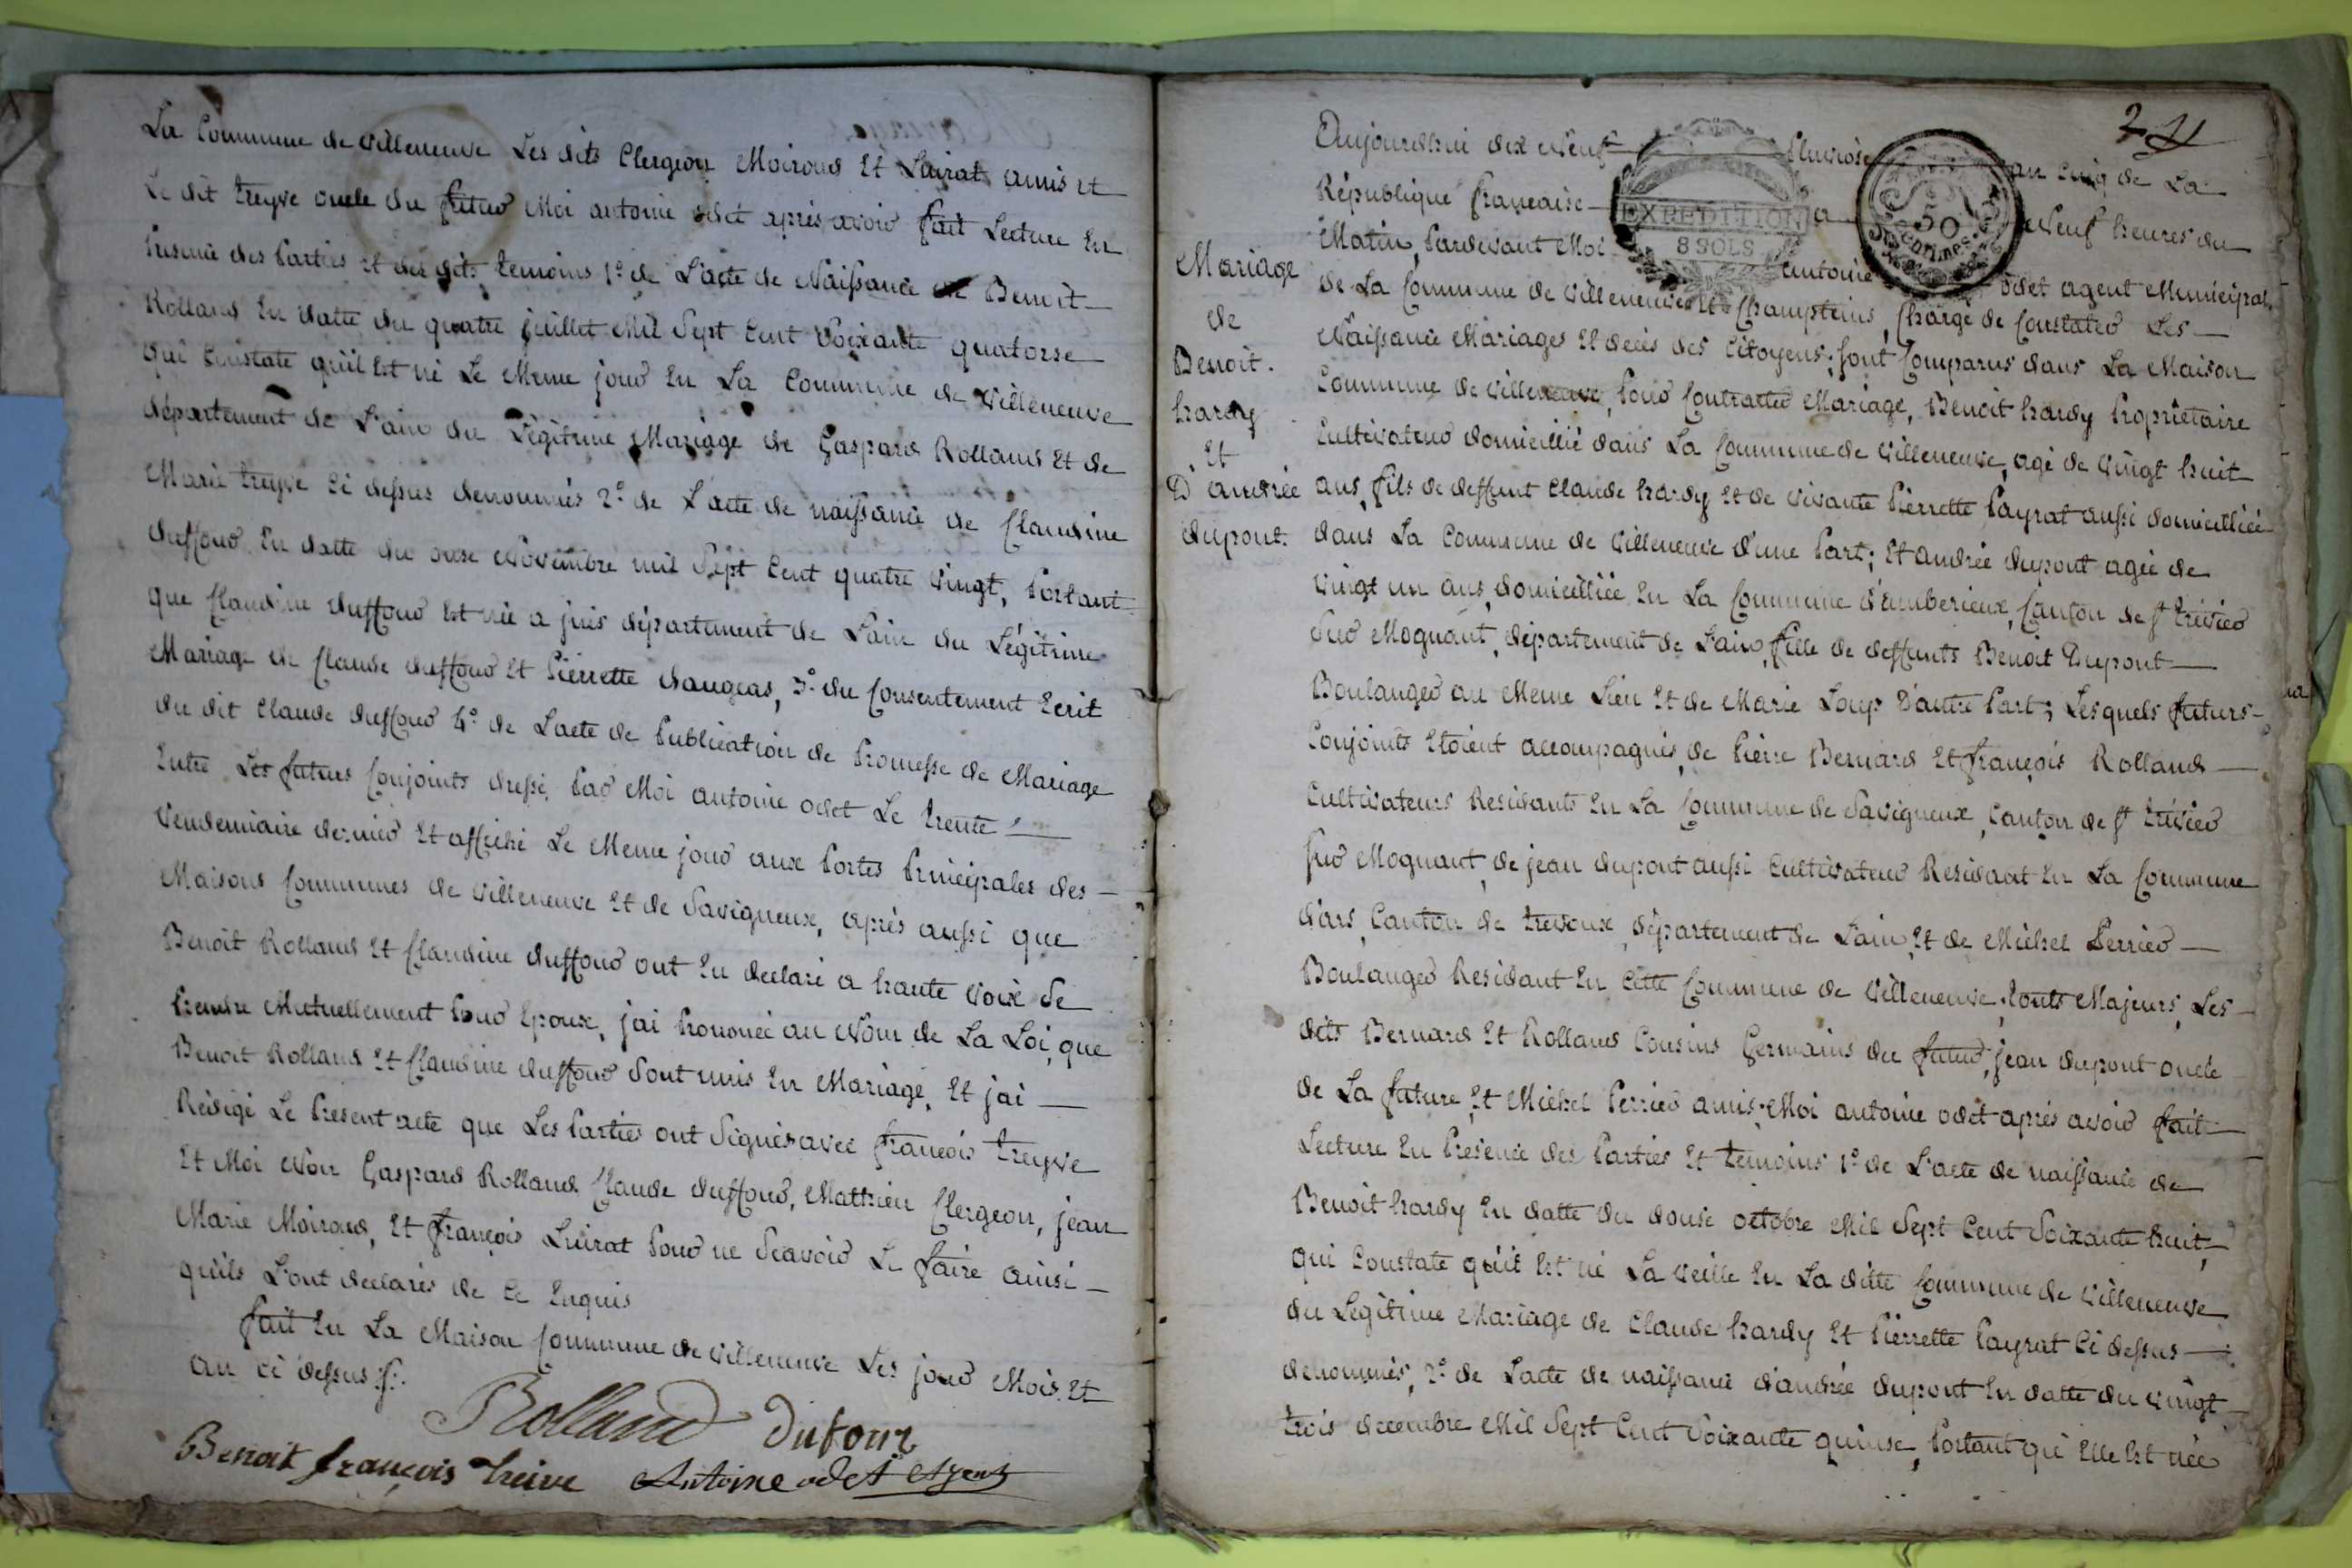 La Commune de Villeneuve Les dits Clergeon Moiroud Et Luirat amis et
Le dit treyve oncle du futur Moi antoine odet après avoir fait Lecture En
Presence des Parties Et des dits temoins 1.° de L'acte de Naissance de Benoit
Rolland En datte du quatre juillet Mil Sept Cent Soixante quatorse
qui Constate qu'il Est né Le Meme jour En La Commune de Villeneuve
département de L'ain du Légitime Mariage de Gaspard Rolland Et de
Marie treyve Ci dessus denommés 2.° de L'acte de naissance de Claudine
duffour En datte du onse Novembre mil Sept Cent quatre Vingt, Portant
que Claudine duffour Est née a juis département de L'ain du Légitime
Mariage de Claude duffour Et Pierrette daugeas, 3.° du Consentement Ecrit
du dit Claude duffour 4.° de L'acte de Publication de Promesse de Mariage
Entre Les futurs Conjoints dressé Par Moi antoine odet Le trente
Vendemiaire dernier Et affiché Le Meme jour aux Portes Principales des
Maisons Communes de Villeneuve Et de Savigneux, après aussi que
Benoit Rolland Et Claudine duffour ont Eu declaré a haute Voix Se
Prendre Mutuellement Pour Epoux, j'ai Prononcé au Nom de La Loi, que
Benoit Rolland Et Claudine duffour Sont unis En Mariage, Et j'ai
Rédigé Le Present acte que Les Parties ont Signés avec françois treyve
Et Moi Non Gaspard Rolland Claude duffour, Matthieu Clergeon, jean
Marie Moiroud, Et françois Luirat Pour ne Scavoir Le faire ainsi
qu'ils L'ont declarés de Ce Enquis
fait En La Maison Commune de Villeneuve Les jour Mois Et
an ci dessus
Rolland Dufour
Benoit françois treive Antoine odet agent
2
Aujourdhui dix Neuf Pluviose an Cinq de La
République française a Neuf heures du
EXPEDITION
8 SOLS
50
CENTIMES
Matin, Pardevant Moi antoine odet agent Municipal
de La Commune de Villeneuve Et Champteins, Chargé de Constater Les
Naissance Mariages Et decès des Citoyens; sont Comparus dans La Maison
Commune de Villeneuve, Pour Contracter Mariage, Benoit hardy Proprietaire
Cultivateur domicillié dans La Commune de Villeneuve, agé de Vingt huit
ans, fils de deffunt Claude hardy Et de Vivante Pierrette Payrat aussi domicilliée
dans La Commune de Villeneuve d'une Part; Et andrée dupont agée de
Vingt un ans, domicilliée En La Commune d'amberieux, Canton de st trivier
Sur Mognant, département de L'ain, fille de deffunts Benoit Dupont
Boulanger au Meme Lieu Et de Marie Loup d'autre Part; Lesquels futurs
Conjoints Etoient accompagnés, de Pierre Bernard Et françois Rolland
Cultivateurs Residants En La Commune de Savigneux, Canton de st trivier
sur Mognant, de jean dupont aussi Cultivateur Residant En La Commune
d'ars, Canton de trevoux, département de L'ain, Et de Michel Perrier
Boulanger Residant En Cette Commune de Villeneuve; touts Majeurs, Les
dits Bernard Et Rolland Cousins Germains du futur, jean dupont oncle
de La future, Et Michel Perrier amis. Moi antoine odet après avoir fait
Lecture En Presence des Parties Et temoins 1.° de L'acte de naissance de
Benoit hardy En datte du douse octobre Mil Sept Cent Soixante huit,
qui Constate qu'il Est né La Veille En La ditte Commune de Villeneuve
du Legitime Mariage de Claude hardy Et Pierrette Payrat Ci dessus
denommés, 2.° de L'acte de naissance d'andrée dupont En datte du Vingt
trois decembre Mil Sept Cent Soixante quinse, Portant qu'Elle Est née
Mariage
de
Benoit.
hardy
Et
D'andrée
dupont.